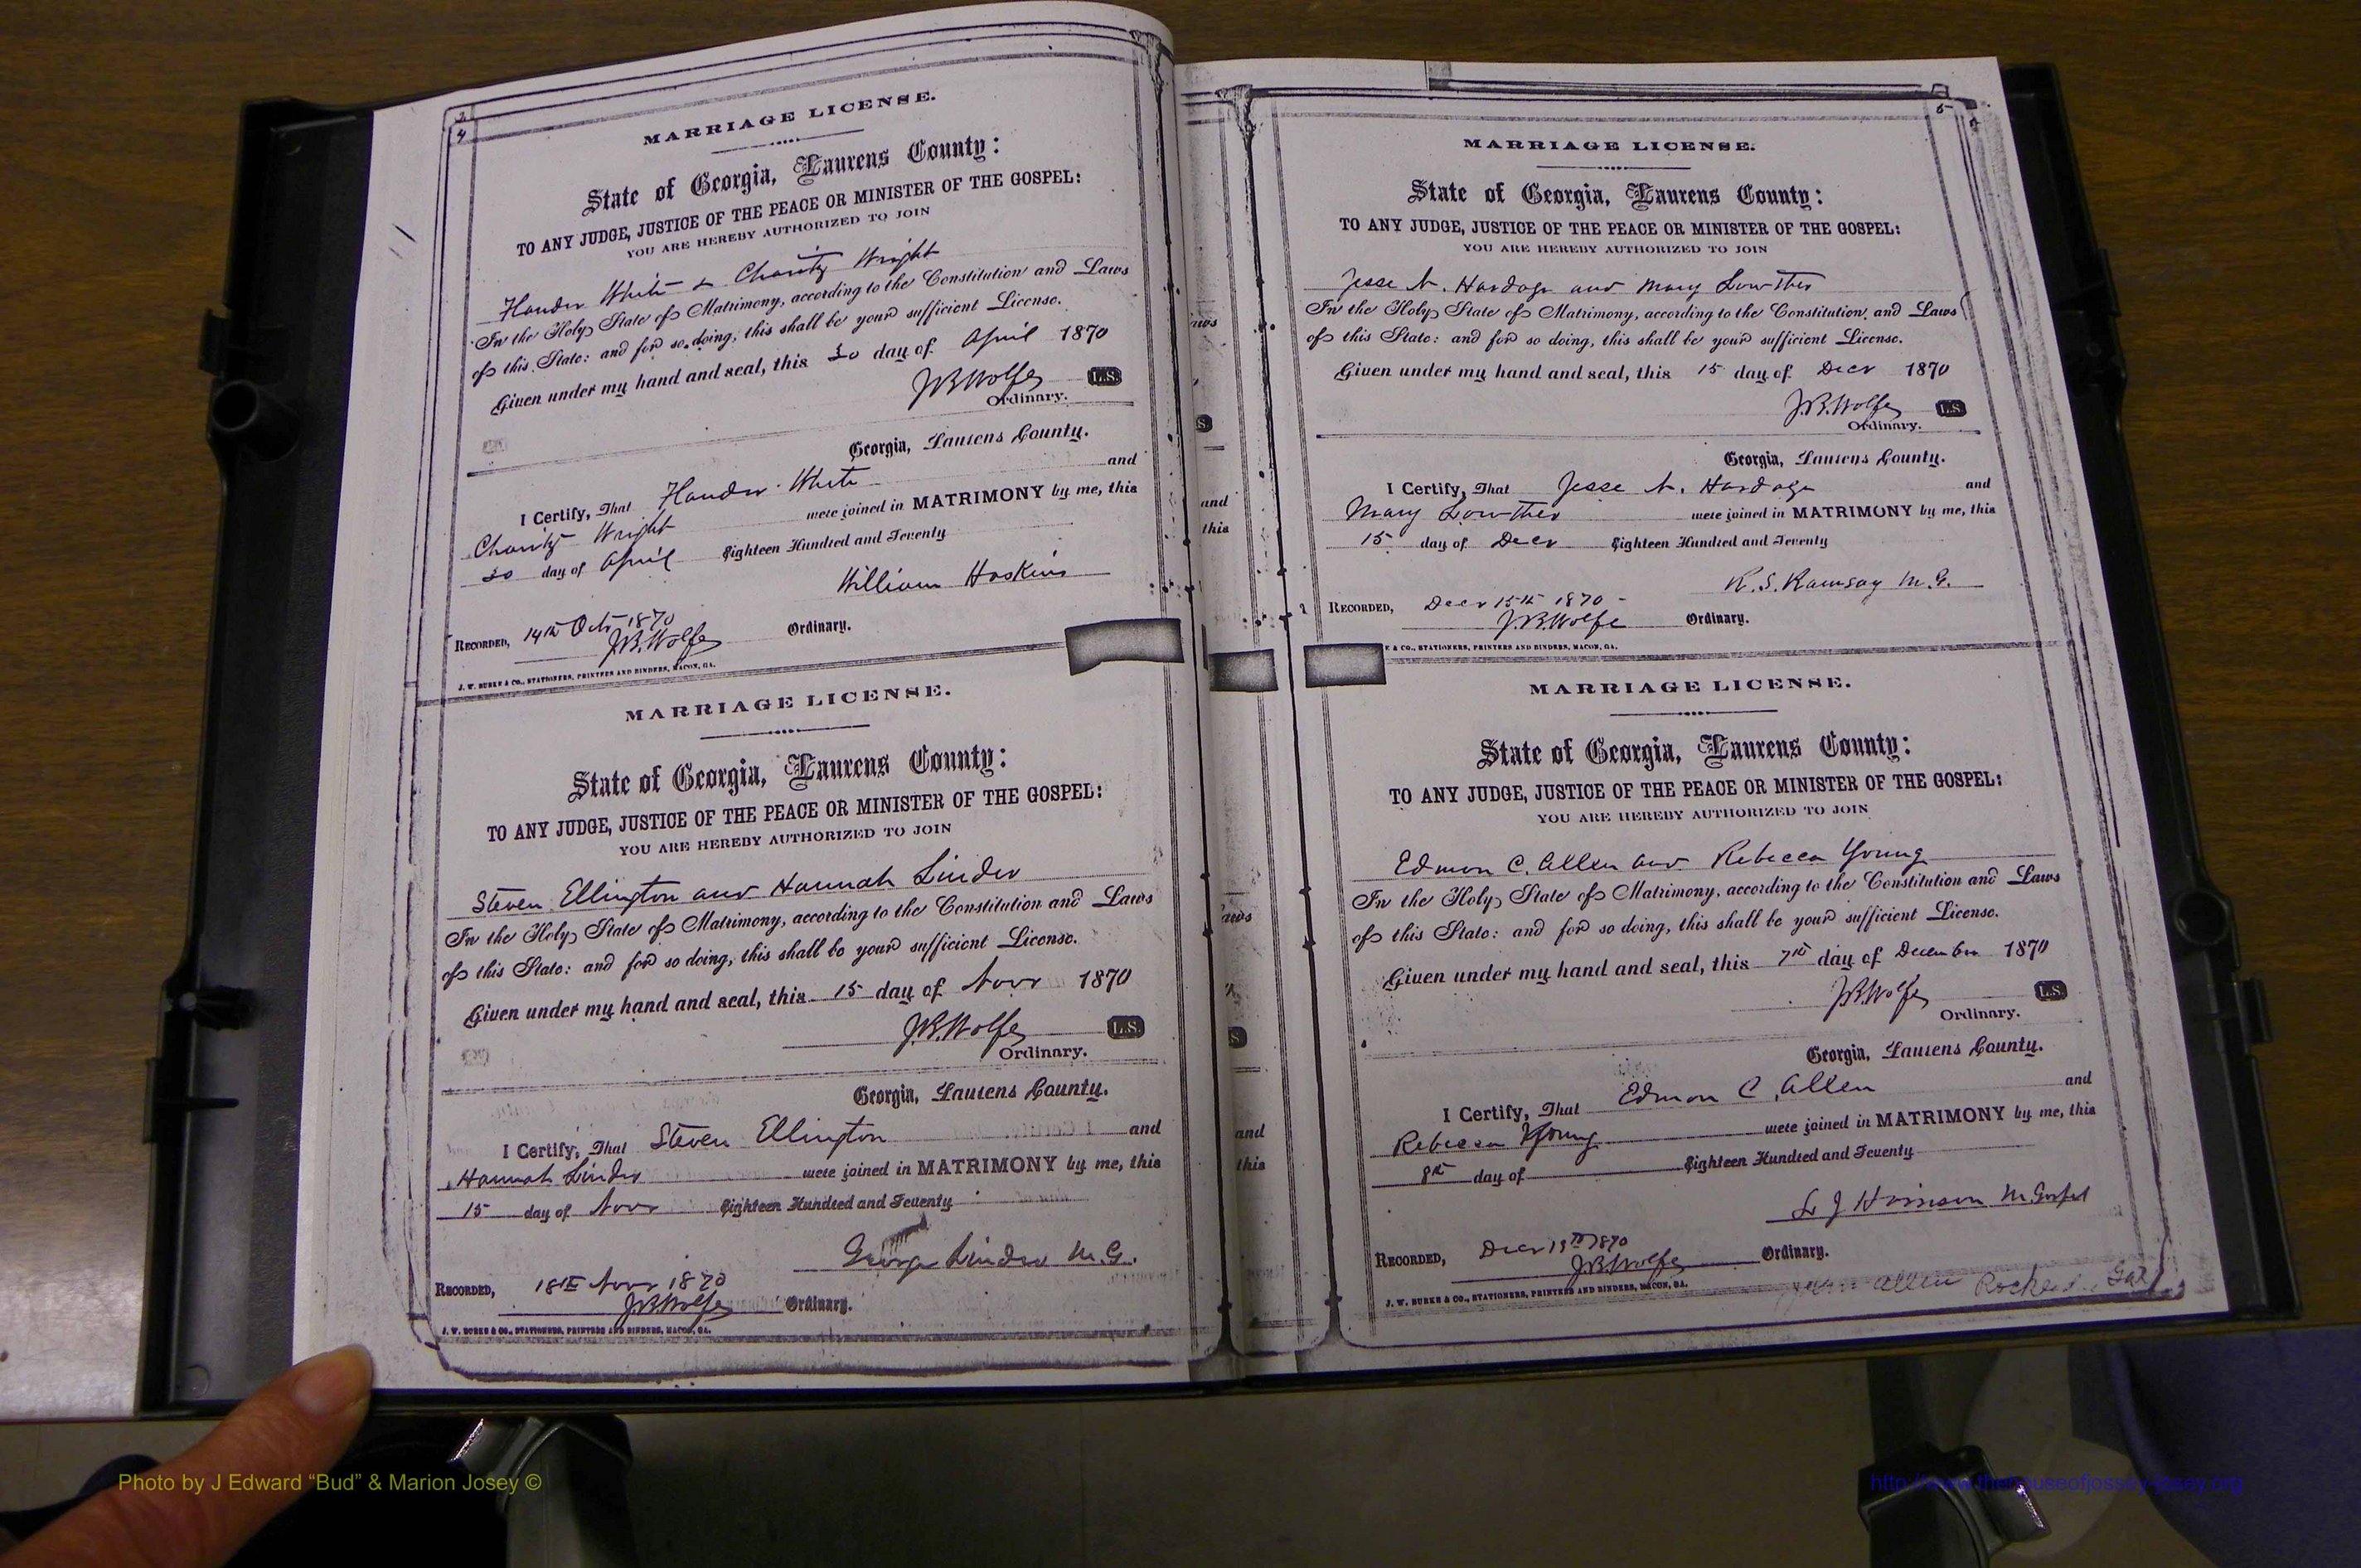 4
MARRIAGE LICENSE.
State of Georgia, Laurens County:
TO ANY JUDGE, JUSTICE OF THE PEACE OR MINISTER OF THE GOSPEL:
YOU ARE HEREBY AUTHORIZED TO JOIN
White & Charity Wright
In the Holy State of Matrimony, according to the Constitution and Laws
of this State: and for so doing, this shall be your sufficient License.
Given under my hand and seal, this 30 day of April 1870
J.B. Wolfe L.S.
Ordinary.
Georgia, Laurens County.
I Certify, That White and
Charity Wright were joined in MATRIMONY by me, this
30 day of April Eighteen Hundred and Seventy
William Hoskins
RECORDED, 14th Oct 1870
J.B. Wolfe Ordinary.
J. W. BURKE & CO., STATIONERS, PRINTERS AND BINDERS, MACON, GA.
MARRIAGE LICENSE.
State of Georgia, Laurens County:
TO ANY JUDGE, JUSTICE OF THE PEACE OR MINISTER OF THE GOSPEL:
YOU ARE HEREBY AUTHORIZED TO JOIN
Steven Ellington and Hannah Linder
In the Holy State of Matrimony, according to the Constitution and Laws
of this State: and for so doing, this shall be your sufficient License.
Given under my hand and seal, this 15 day of Novr 1870
J.B. Wolfe L.S.
Ordinary.
Georgia, Laurens County.
I Certify, That Steven Ellington and
Hannah Linder were joined in MATRIMONY by me, this
15 day of Novr Eighteen Hundred and Seventy
George Linder M.G.
RECORDED, 18th Novr 1870
J.B. Wolfe Ordinary.
J. W. BURKE & CO., STATIONERS, PRINTERS AND BINDERS, MACON, GA.
and
this
and
this
5
MARRIAGE LICENSE.
State of Georgia, Laurens County:
TO ANY JUDGE, JUSTICE OF THE PEACE OR MINISTER OF THE GOSPEL:
YOU ARE HEREBY AUTHORIZED TO JOIN
Jesse N. Hardage and Mary Lowther
In the Holy State of Matrimony, according to the Constitution and Laws
of this State: and for so doing, this shall be your sufficient License.
Given under my hand and seal, this 15 day of Decr 1870
J.B. Wolfe L.S.
Ordinary.
Georgia, Laurens County.
I Certify, That Jesse N. Hardage and
Mary Lowther were joined in MATRIMONY by me, this
15 day of Decr Eighteen Hundred and Seventy
R.S. Ramsay M.G.
RECORDED, Decr 15th 1870
J.B. Wolfe Ordinary.
E & CO., STATIONERS, PRINTERS AND BINDERS, MACON, GA.
MARRIAGE LICENSE.
State of Georgia, Laurens County:
TO ANY JUDGE, JUSTICE OF THE PEACE OR MINISTER OF THE GOSPEL:
YOU ARE HEREBY AUTHORIZED TO JOIN
Edmon C. Allen and Rebecca Young
In the Holy State of Matrimony, according to the Constitution and Laws
of this State: and for so doing, this shall be your sufficient License.
Given under my hand and seal, this 7th day of December 1870
J.B. Wolfe L.S.
Ordinary.
Georgia, Laurens County.
I Certify, That Edmon C. Allen and
Rebecca Young were joined in MATRIMONY by me, this
8th day of Eighteen Hundred and Seventy
M. Gospel
RECORDED, Decr 19th 1870
J.B. Wolfe Ordinary.
J. W. BURKE & CO., STATIONERS, PRINTERS AND BINDERS, MACON, GA.
Allen
Photo by J Edward “Bud” & Marion Josey ©
http://www.thehouseofjossey-josey.org